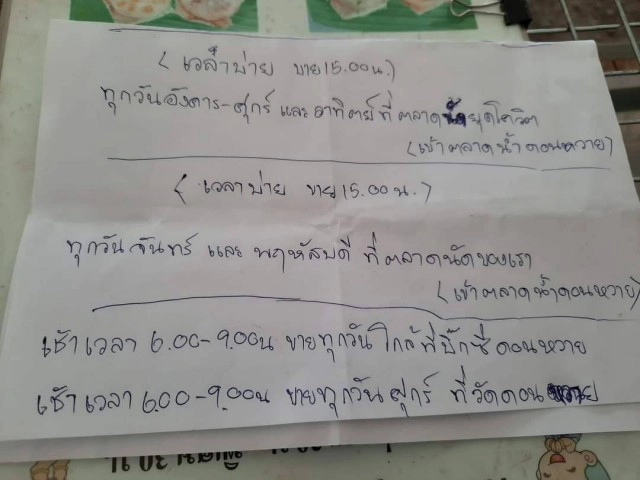 (เวลาบ่าย ขาย15.00น.)
ทุกวันอังคาร-ศุกร์ และ อาทิตย์ ที่ ตลาดนัด
(เข้าตลาดน้ำดอนหวาย)
(เวลาบ่าย ขาย15.00น.)
ทุกวันจันทร์ และ พฤหัสบดี ที่ตลาดนัดของเรา
(เข้าตลาดน้ำดอนหวาย)
เช้าเวลา 6.00-9.00น ขายทุกวัน ใกล้ที่บิ๊กซีดอนหวาย
เช้าเวลา 6.00-9.00น ขายทุกวันศุกร์ ที่วัดดอนหวาย